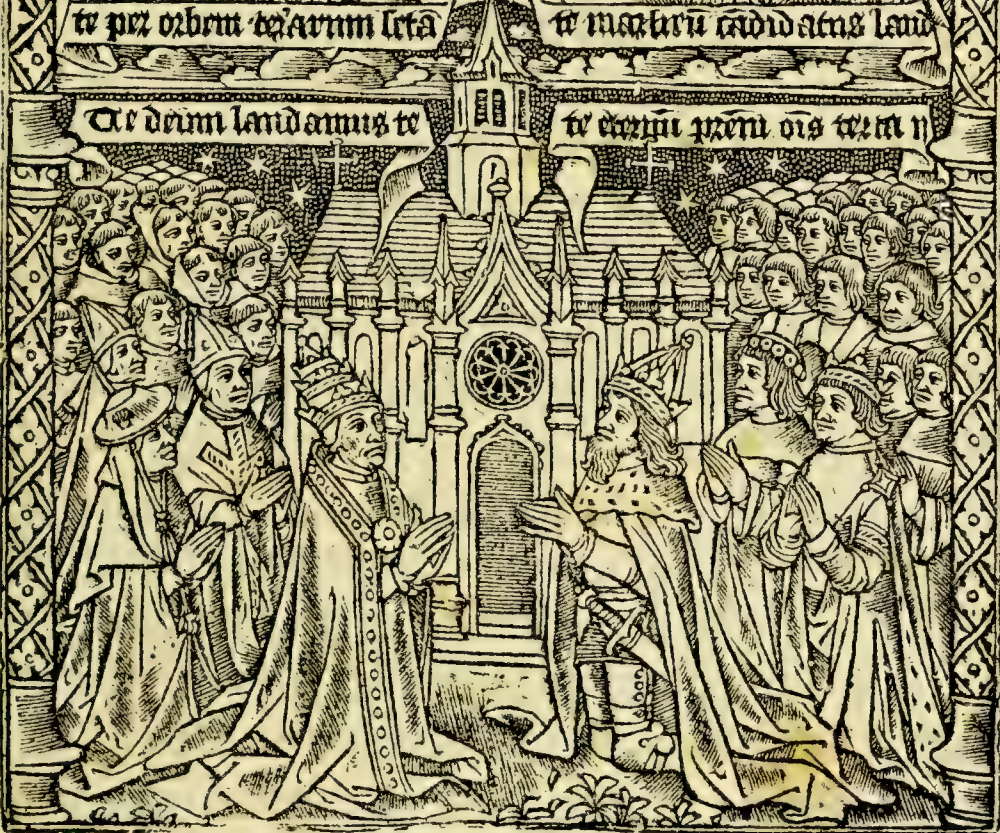 te per orbem terarum scta
te martirū cādidatus laud
Te deum laudamus te
te eternū prēm oīs terra v